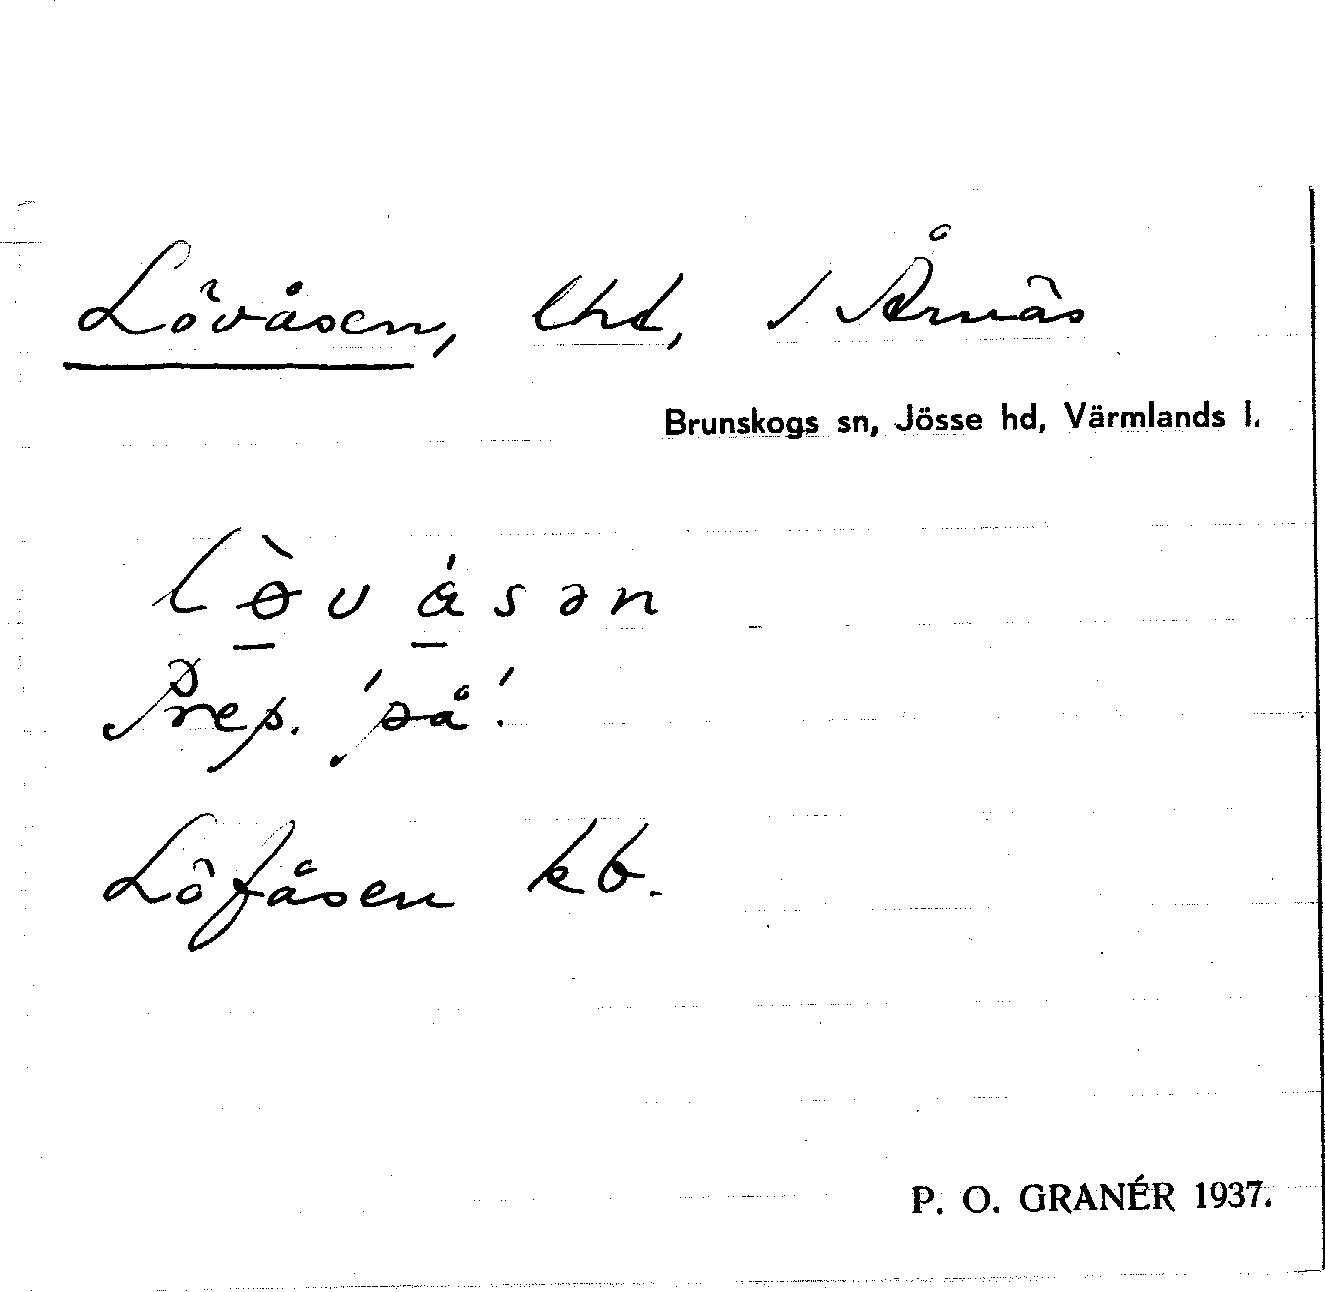 Lövåsen, lht, / Årnäs
Brunskogs sn, Jösse hd, Värmlands l.
lɵ̱̀vɑ̱́sən
Prep. 'på'.
Löfåsen kb.
P. O. GRANÉR 1937.